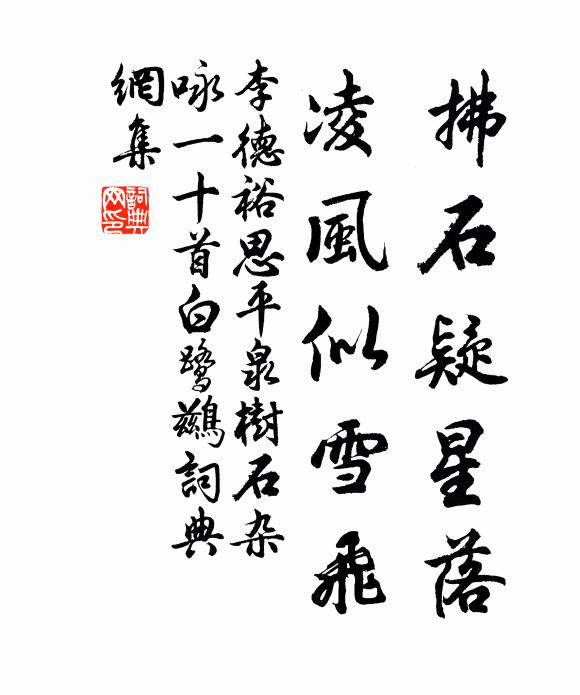 拂石疑星落
凌風似雪飛
李德裕思平泉樹石杂
咏一十首白鹭鷀詞典
網集
詞典
网印